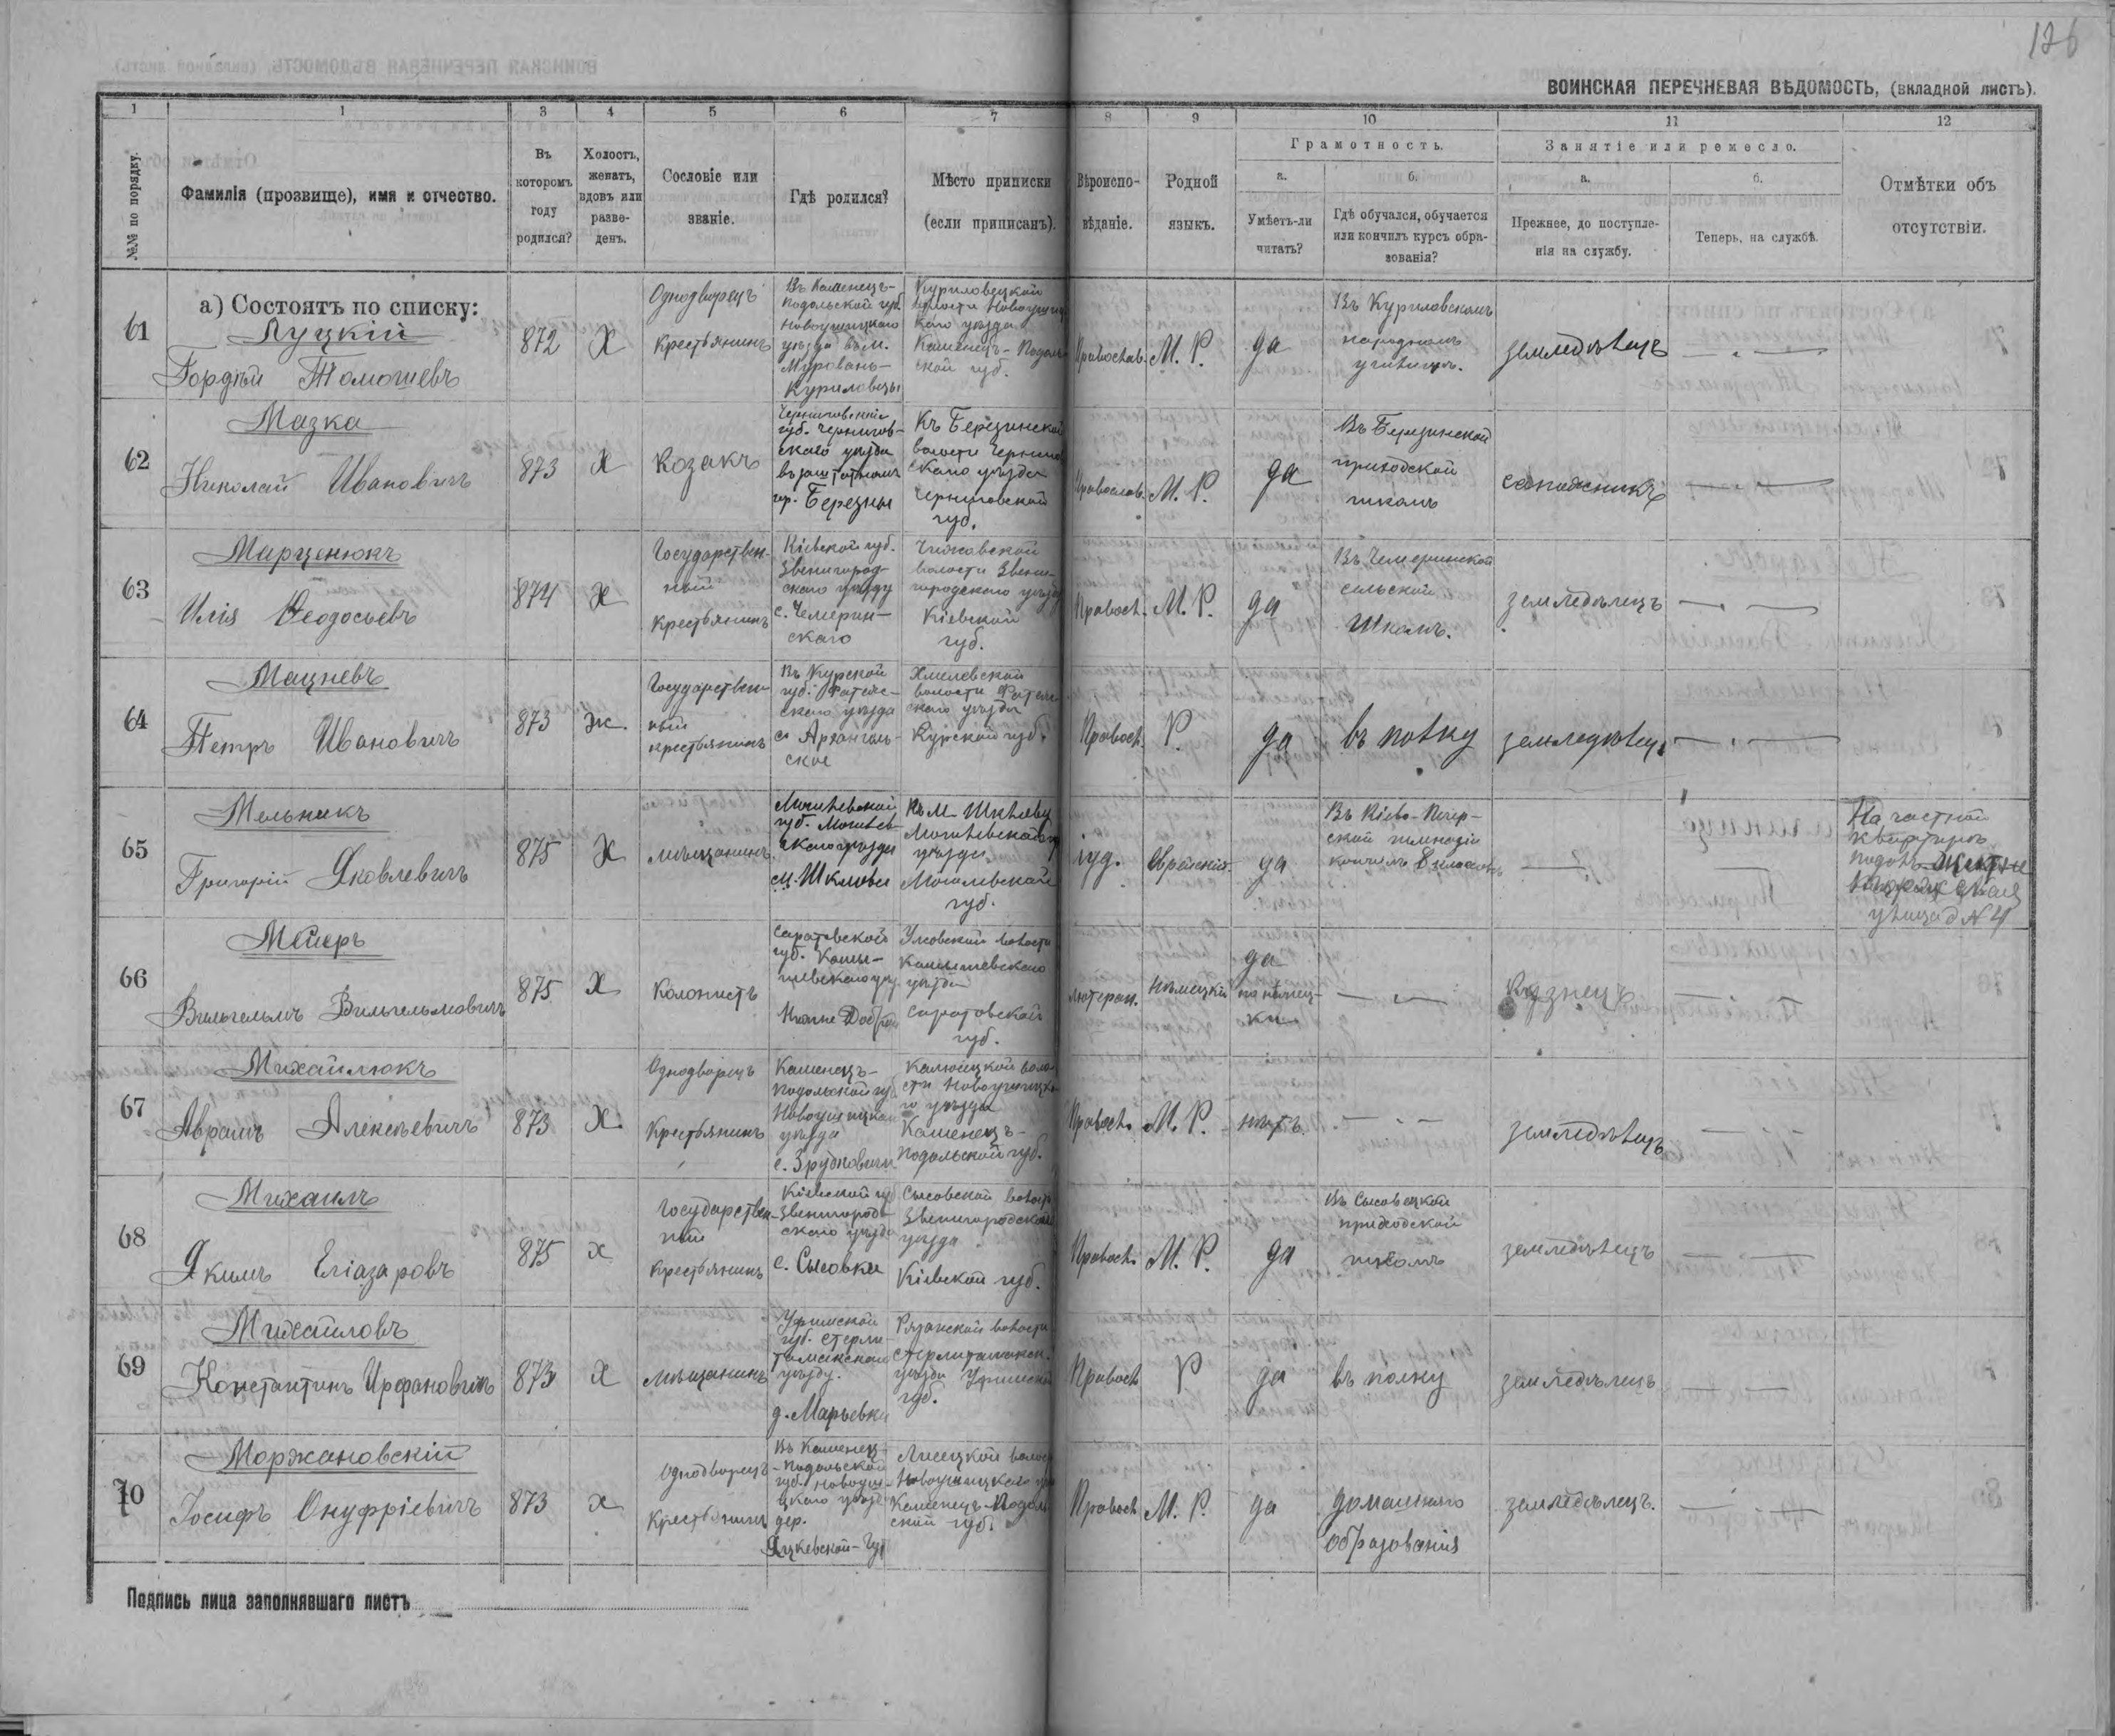 126
ВОИНСКАЯ ПЕРЕЧНЕВАЯ ВѢДОМОСТЬ, (вкладной листъ).
1 1 3 4 5 6 7 8 9 10 11 12
№№ по порядку.
Фамилія (прозвище), имя и отчество.
Въ которомъ году родился?
Холостъ, женатъ, вдовъ или разве-денъ.
Сословіе или званіе.
Гдѣ родился?
Мѣсто приписки (если приписанъ).
Вѣроиспо-вѣданіе.
Родной языкъ.
Грамотность.
а. Умѣетъ-ли читать?
б. Гдѣ обучался, обучается или кончилъ курсъ обра-зованія?
Занятіе или ремесло.
а. Прежнее, до поступле-нія на службу.
б. Теперь, на службѣ.
Отмѣтки объ отсутствіи.
а) Состоятъ по списку:
61
Луцкій
Гордѣй Томошевъ
872
Х
Однодворецъ
крестьянинъ
Въ Каменецъ-
Подольской губ.
Новоушицкаго
уѣзда въ м.
Мурованъ-
Куриловцы
Куриловецкой
волости Новоушиц
каго уѣзда
Каменецъ-Подоль
ской губ.
Православ.
М. Р.
да
Въ Куриловскомъ
народномъ
училищѣ.
земледѣлецъ
62
Мазка
Николай Ивановичъ
873
Х
Козакъ
Черниговской
губ. Чернигов-
скаго уѣзда
въ заштатномъ
гр. Березны
Къ Березинской
волости Чернигов
скаго уѣзда
Черниговской
губ.
Православ.
М. Р.
да
Въ Березинской
приходской
школѣ
сапожникъ
63
Марценюкъ
Илія Ѳеодосьевъ
874
Х
Государствен-
ный
крестьянинъ
Кіевской губ.
Звенигород-
скаго уѣзду
с. Чемерин-
скаго
Чижовской
волости Звени-
городскаго уѣзда
Кіевской
губ.
Правосл.
М. Р.
да
Въ Чемеринской
сельской
школѣ.
земледѣлецъ
64
Мацневъ
Петръ Ивановичъ
873
Ж.
Государствен-
ный
крестьянинъ
Въ Курской
губ. Фатеж-
скаго уѣзда
с. Архангель-
ское
Хмелевской
волости Фатеж
скаго уѣзда
Курской губ.
Правосл.
Р.
да
въ полку
земледѣлецъ
65
Мельникъ
Григорій Яковлевичъ
875
Х
мѣщанинъ
Могилевской
губ. Могилев-
скаго уѣзда
м. Шкловѣ
Къ м. Шклову
Могилевскаго
уѣзда
Могилевской
губ.
іуд.
Еврейскій
да
Въ Кіево-Печер-
ской гимназіи
кончилъ 8 классовъ
На частной
квартирѣ
Подолъ
улица д № 4
66
Мейеръ
Вильгельмъ Вильгельмовичъ
875
Х
Колонистъ
Саратовской
губ. Камы-
шевскаго уѣз.
волости
Камышевскаго
уѣзда
Саратовской
губ.
лютеран.
Нѣмецкій
да
по нѣмец-
ки
Кузнецъ
67
Михайлюкъ
Авраамъ Алексѣевичъ
873
Х.
Однодворецъ
крестьянинъ
Каменецъ-
Подольской гу
Новоушицкаго
уѣзда
Калюсцкой воло
сти Новоушицка
го уѣзда
Каменецъ-
Подольской губ.
Правосл.
М. Р.
нѣтъ.
земледѣлецъ
68
Михаилъ
Якимъ Еліазаровъ
875
х
Государствен-
ный
крестьянинъ
Кіевской гу
Звенигород-
скаго уѣзда
с. Сысовки
Сысовской волости
Звенигородскаго
уѣзда
Кіевской губ.
Правосл.
М. Р.
да
Въ Сысовецкой
приходской
школѣ
земледѣлецъ
69
Михайловъ
Константинъ
873
Х
мѣщанинъ
Уфимской
губ. Стерли
тамакскаго
уѣзду.
д. Марьевка
Рязанской волости
Стерлитамакск.
уѣзда Уфимской
губ.
Правосл
Р
да
въ полку
земледѣлецъ
70
Моржановскій
Іосифъ Онуфріевичъ
873
х
Однодворецъ
крестьянинъ
Въ Каменец-
-Подольской
губ. Новоуш-
ицкаго уѣзд
дер.
Лисецкой волос
Новоушицкаго уѣз
Каменецъ-Подоль
ской губ.
Правосл
М. Р.
да
домашняго
образованія
земледѣлецъ.
Подпись лица заполнявшаго листъ